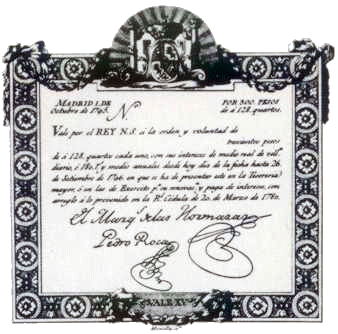 MADRID 1. DE
Octubre de 1795.
N.
POR 300. PESOS
de á 128. quartos.
Vale por el REY N.S. á la orden y voluntad de
trescientos pesos
de á 128. quartos cada uno, con sus intereses de medio real de vell.
diario, ó 180 r.s y medio anuales desde hoy dia de la fecha hasta 26.
de Setiembre de 1796. en que se ha de presentar este en la Tesorería
mayor, ó en las de Exercito p.a su renovac.n y paga de intereses, con
arreglo á lo prevenido en la R.l Cédula de 20. de Marzo de 1780.
El Marq.s de las Hormazas
Pedro Roca
VALE XV